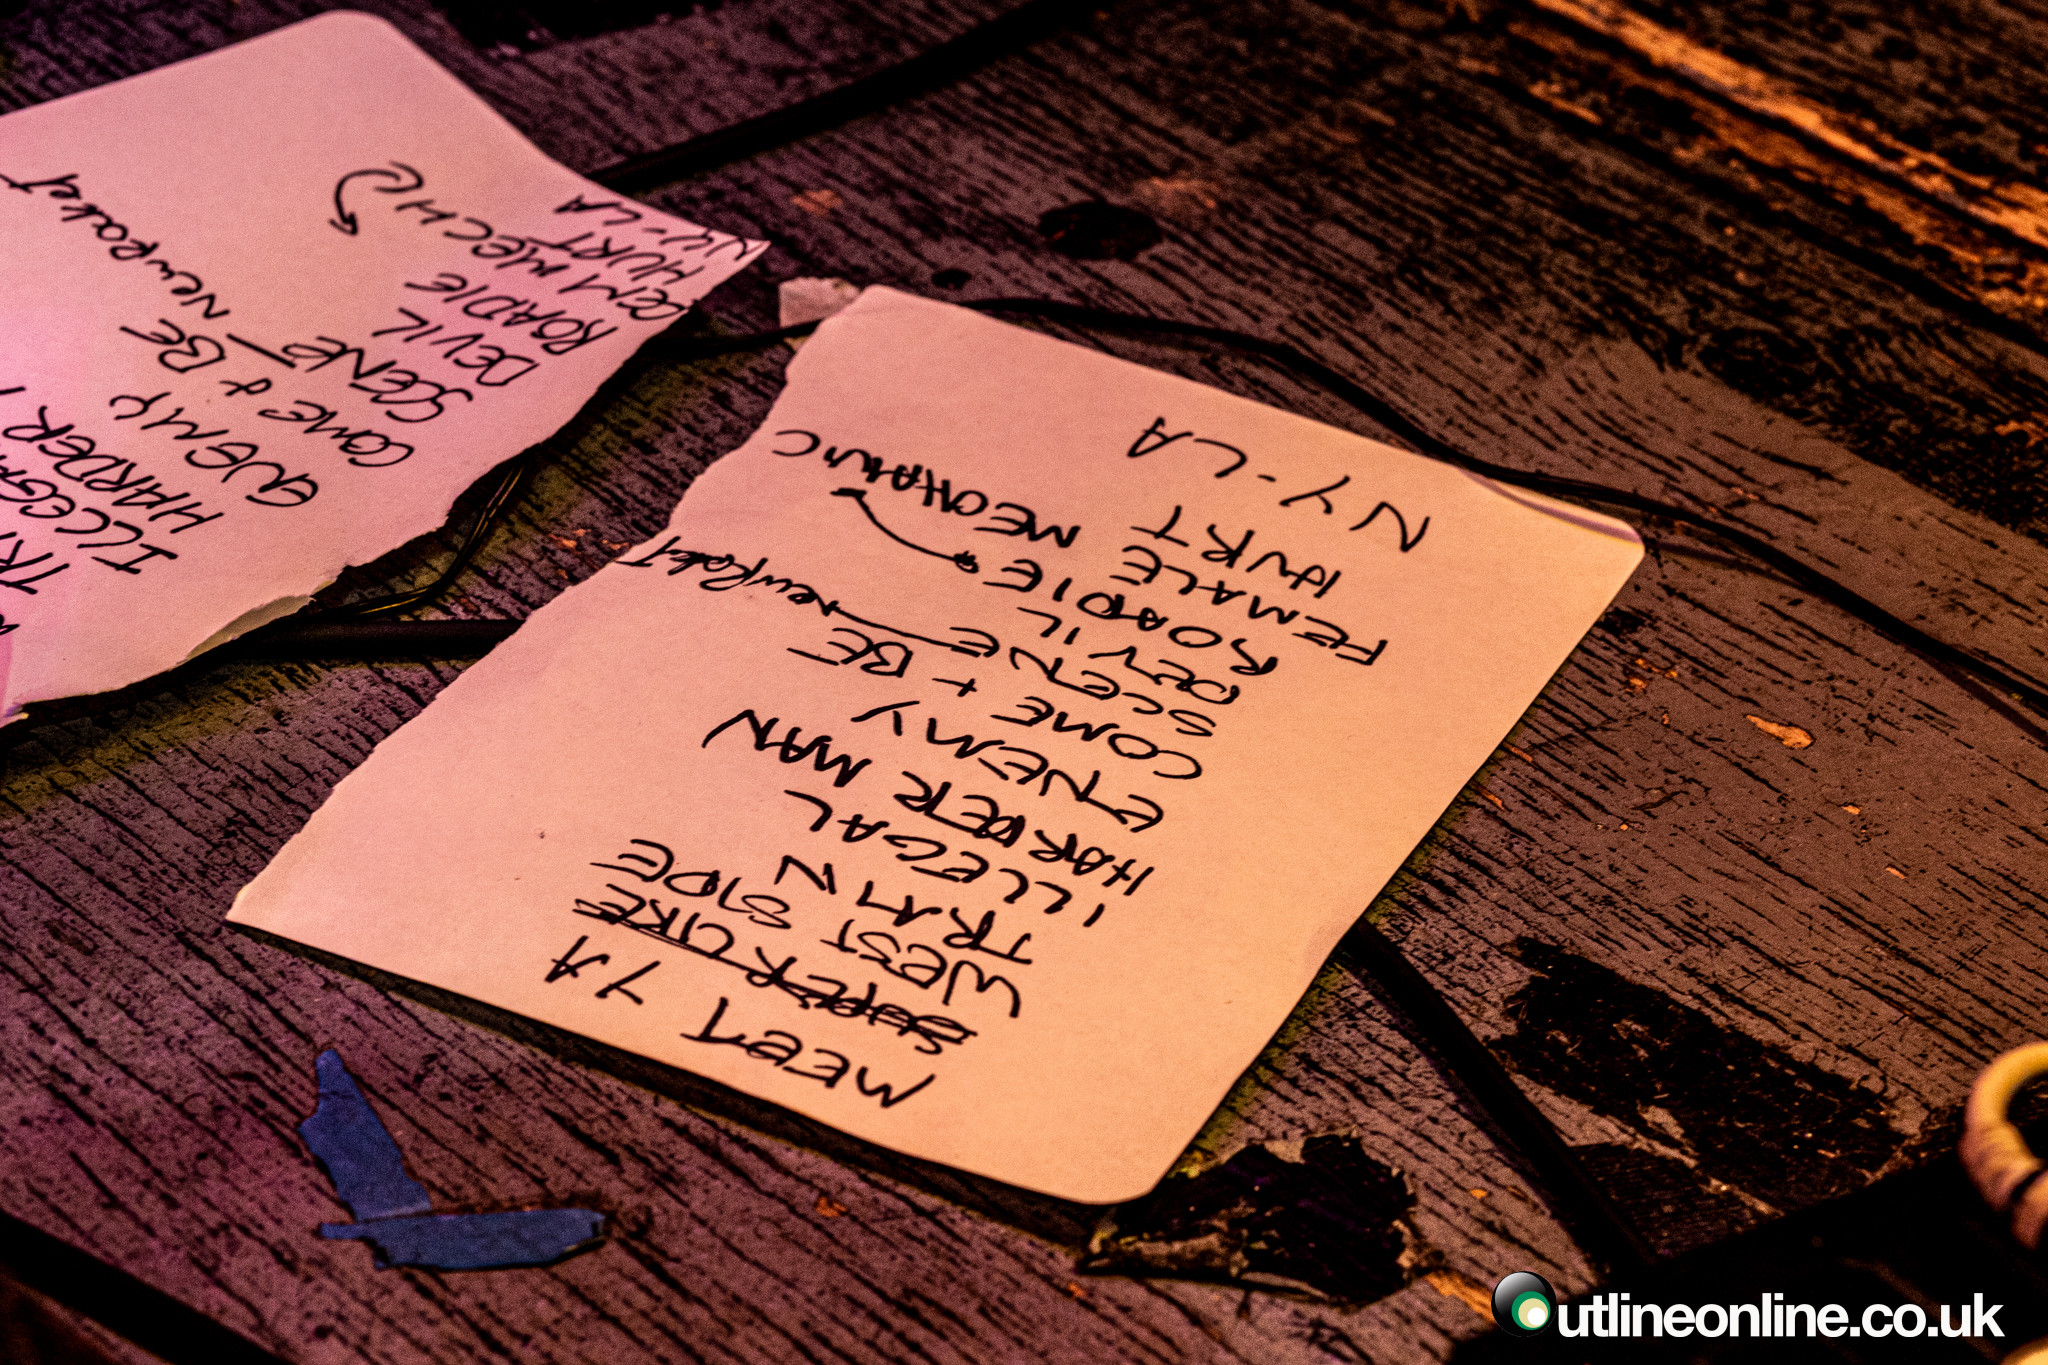 MEET YA
SUPERLIKE
WEST SIDE
TRAIN
ILLEGAL
HARDER MAN
ENEMY
COME + BE
SCENE newRocket
DEVIL
ROADIE
FEMALE MECHANIC
HURT
NY-LA
TRA
ILLEGA
HARDER
ENEMY
COME & BE
SCENE NewRocket
DEVIL
ROADIE
FEM MECH
HURT
NY-LA
utlineonline.co.uk